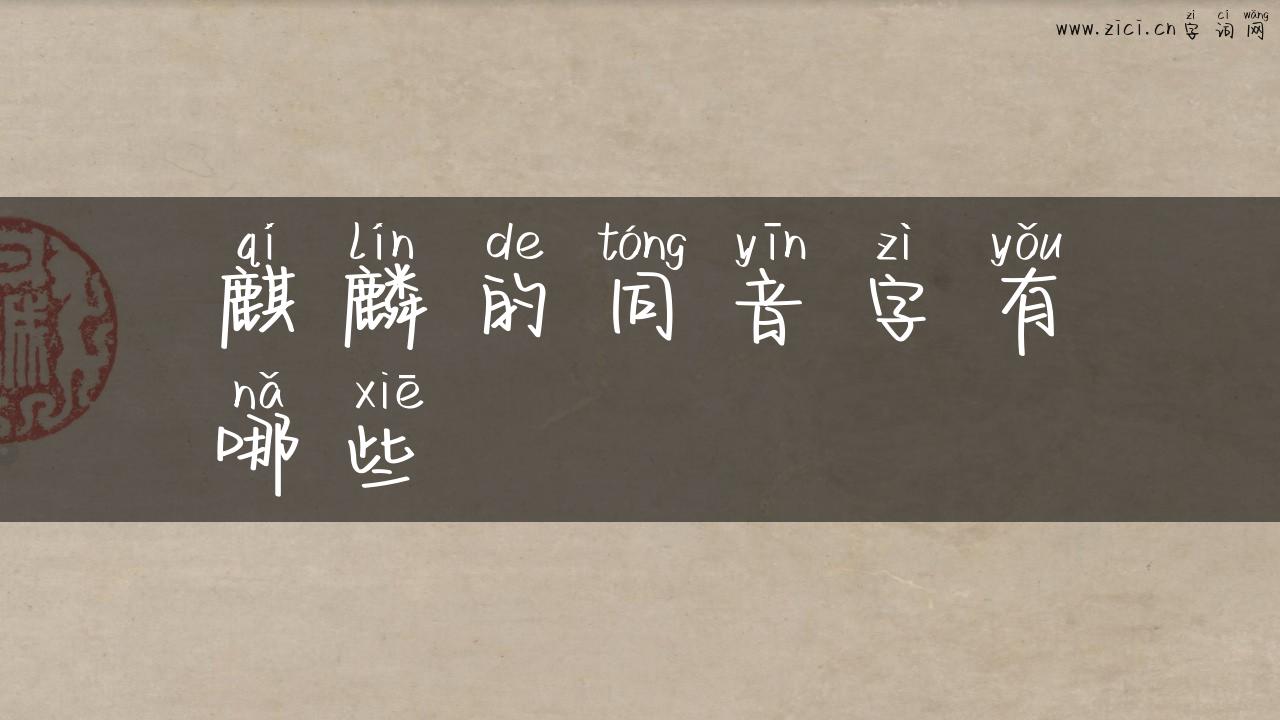 zì cí wǎng
www.zici.cn 字词网
qí lín de tóng yīn zì yǒu
麒麟的同音字有
nǎ xiē
哪些